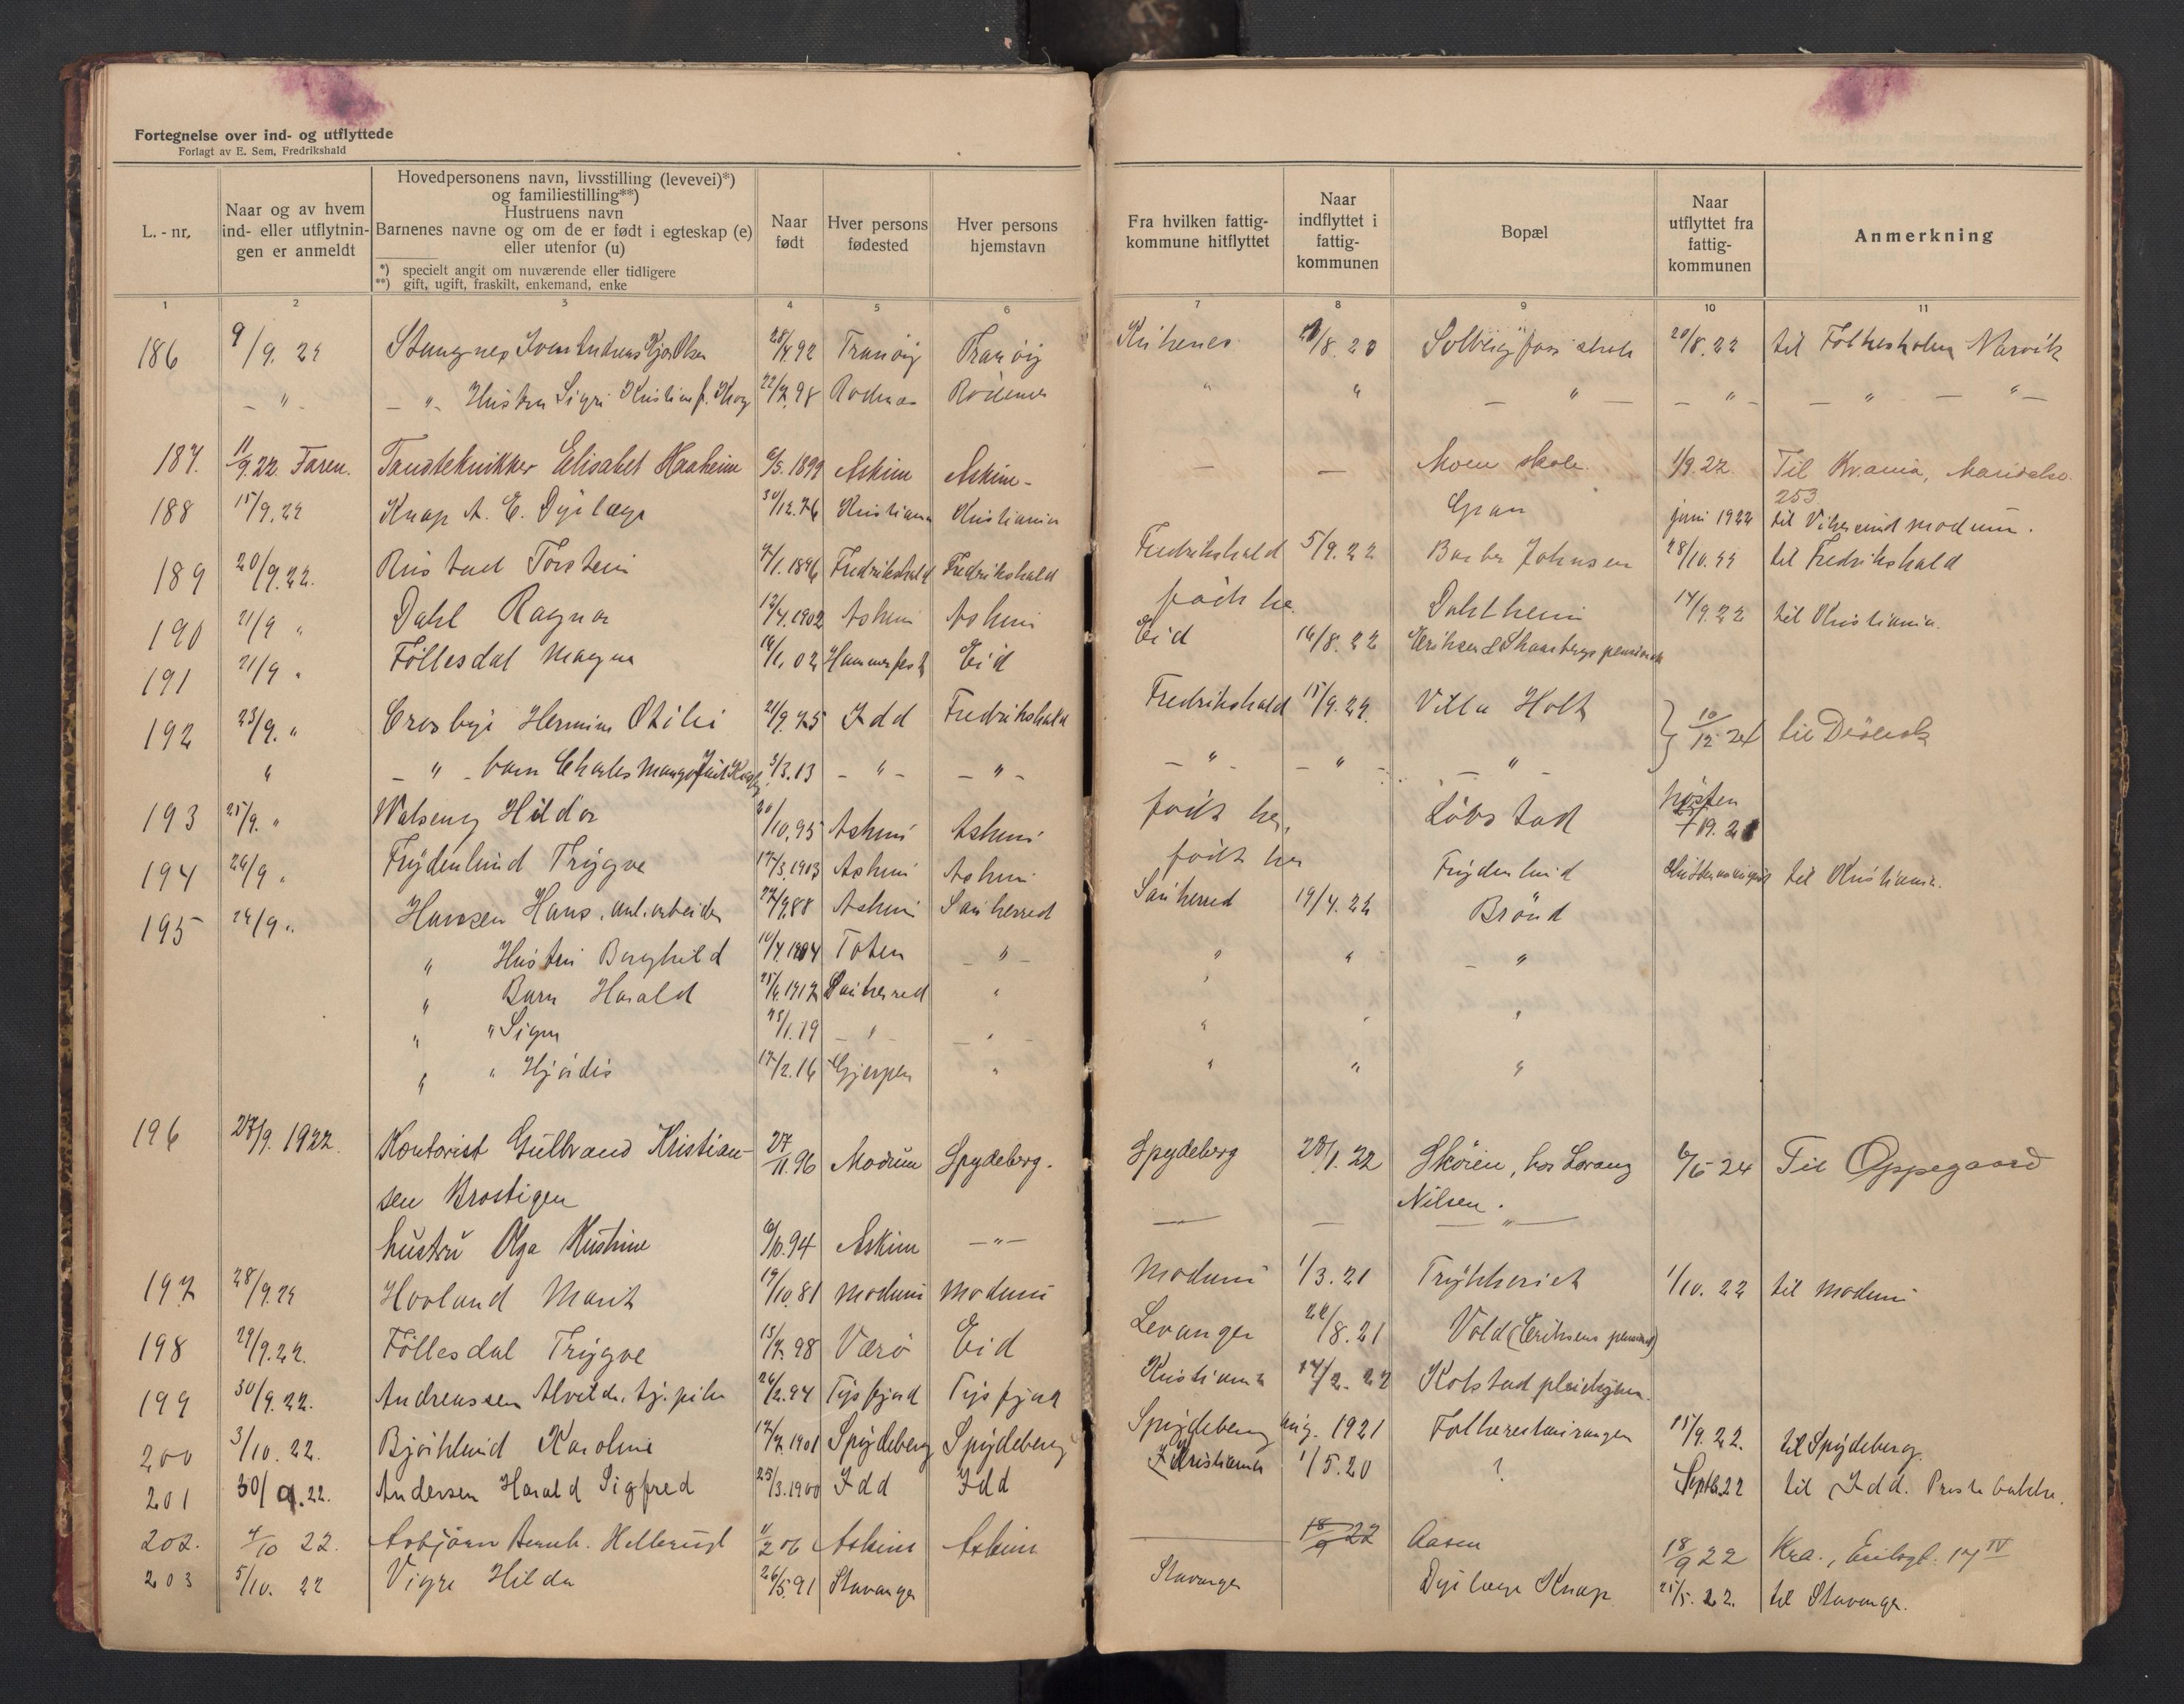 Fortegnelse over ind- og utflyttede
Forlagt av E. Sem, Fredrikshald
L.-nr.
Naar og av hvem ind- eller utflytningen er anmeldt
Hovedpersonens navn, livsstilling (levevei)*)
og familiestilling**)
Hustruens navn
Barnenes navne og om de er født i egteskap (e)
eller utenfor (u)
*) specielt angit om nuværende eller tidligere
**) gift, ugift, fraskilt, enkemand, enke
Naar født
Hver persons fødested
Hver persons hjemstavn
Fra hvilken fattigkommune hitflyttet
Naar indflyttet i fattigkommunen
Bopæl
Naar utflyttet fra fattigkommunen
Anmerkning
1 2 3 4 5 6 7 8 9 10 11
186 9/9. 22 Stangnes 28/4 92 Tranöig Tranöig /8. 20 20/8. 22 til Narvik
– " – – " – Hustru Sigri Kristine f. 22/7. 98 Rödenes " " – " – – " – – " – " –
187. 11/9.22 Faren. Tandtekniker Elisabet Haaheim 6/5. 1899 Askim Askim – — — Moen skole. 1/9. 22 Til Kr.ania, Maridalsv. 253
188 15/9. 22 Knap A. E. Dyrlæge 30/12. 76 Kristiania Kristiania Gran juni 1922 til Vikersund Modum.
189 20/9. 22. Rustad Torstein 7/1. 1896 Fredrikshald Fredrikshald Fredrikshald 5/9. 22 Johnsen 28/10. 22 til Fredrikshald
190 21/9 " Dahl Ragna 12/4. 1902 Askim Askim født her. Dahlheim 14/9. 22 til Kristiania.
191 21/9 " Föllesdal Magna 14/1. 02 Hammerfest Eid Eid 16/8. 22 Eriksen & Skaarbergs pensionat
192 23/9. " Hermine Otilie 21/9. 75 Idd Fredrikshald Fredrikshald 15/9. 22. Villa Holt } 10/12 24 til Dröbak
" – " – barn Charles 3/3. 13 – " – – " – – " – – " – – " –
193 25/9. " Walseng Hilda 20/10. 95 Askim Askim født her. Löbstad høsten
194 26/9 " Frydenlund Trygve 17/3. 1903 Askim Askim født her Frydenlund til Kristiania.
195 26/9 " Hansen Hans, anl.arbeider 88 Askim Sauherred Sauherred 19/4. 22 Brönd
" Hustru Borghild 10/4. 1904 Toten – " – " " – " –
" Barn Harald 1917 Sauherred " "
" " Signe 25/1. 19 – " – – " – " " "
" " Hjördis 17/2. 16 Gjerpen " " " "
196 27/9. 1922. Kontorist Gulbrand Kristian- 27/11. 96 Modum Spydeberg. Spydeberg 28/1. 22 Skøien, hos Lorang 6/5 24 Til Oppegaard
sen Brostigen Nilsen.
hustru Olga Kristine 6/10. 94 Askim – " – — — – " –
197 28/9. 22 Hovland Marit 19/10. 81 Modum Modum Modum 1/3. 21 Trykkeriet 1/10. 22 til Modum
198 29/9. 22. Föllesdal Trygve 15/7. 98 Værö Eid Levanger 24/8. 21 Vold (Eriksens pensionat)
199 30/9. 22. Andreassen Alvilde, tj. pike 26/2. 94 Tysfjord Tysfjord Kristiania 14/2. 22 Kolstad pleiehjem.
200 3/10. 22. Bjørklund Karoline 17/7. 1901 Spydeberg Spydeberg Spydeberg aug. 1921 Folkerestaurangen 15/9. 22. til Spydeberg.
201 30/9. 22. Andersen Harald Sigfred 25/3. 1900 Idd Idd Kristiania 1/5. 20 ? Septb. 22 til Idd. Prestebakke.
202. 4/10 22. Asbjörn Bernh. Hellerud 11/2 06 Askim Askim — 18/9 22 Aasen 18/9 22 Kra., 17 IV
203 5/10. 22 Vigre Hilda 26/5. 91 Stavanger Stavanger Dyrlæge Knap 25/5. 22. til Stavanger.